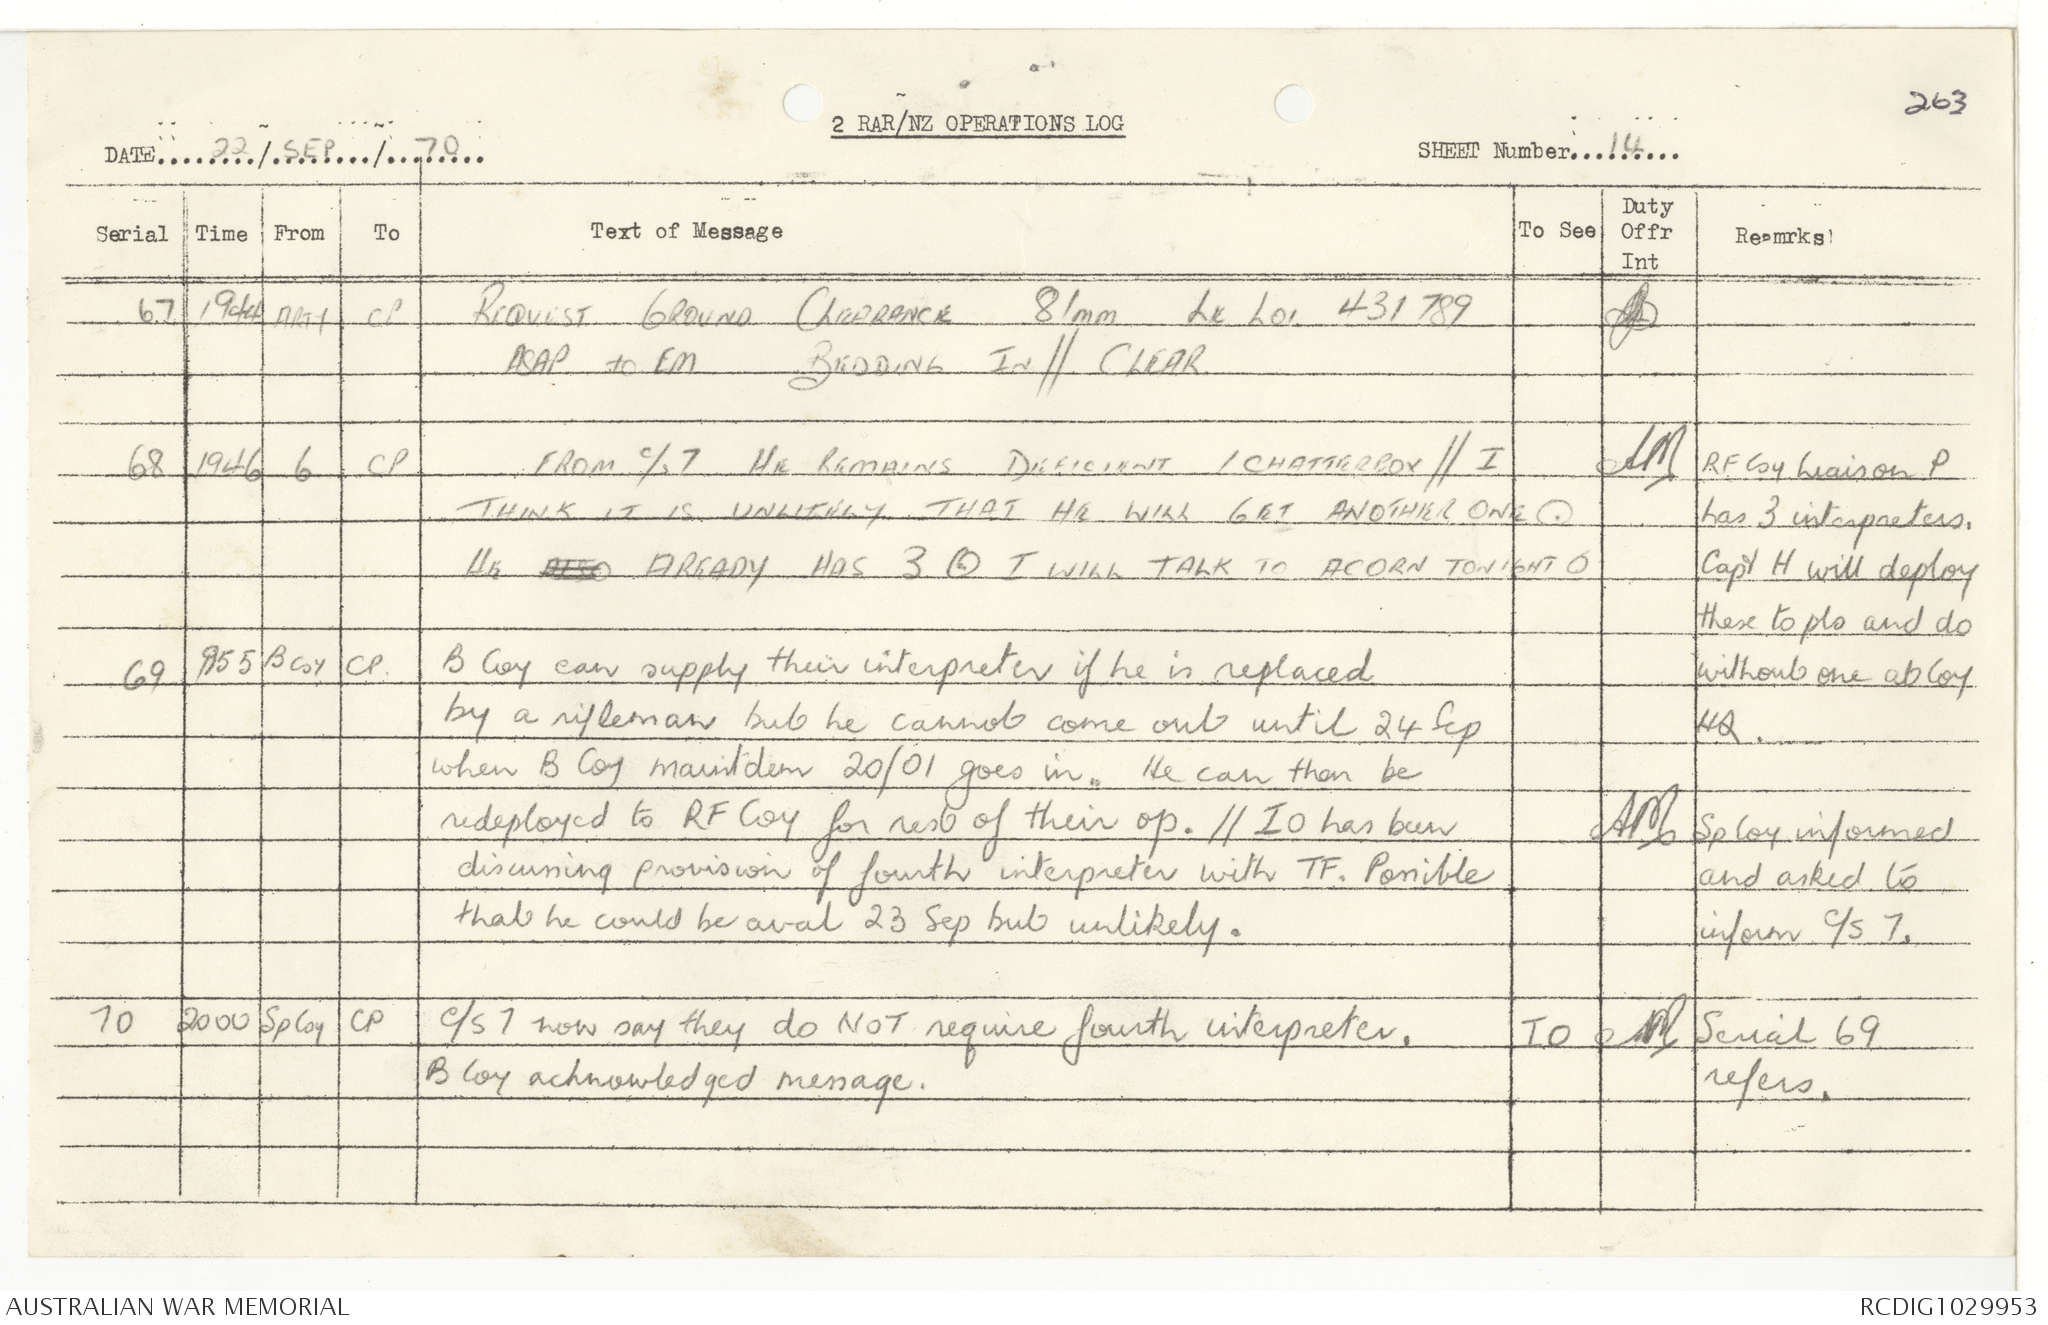 263
2 RAR/NZ OPERATIONS LOG
DATE.....22..../.SEP..../...70...
SHEET Number...14....
Serial Time From To Text of Message To See Duty Offr Int Remrks
67 1944 ARTY CP REQUEST GROUND CLEARANCE 81mm LE LOI 431 789
ASAP to EM BEDDING IN // CLEAR
68 1946 6 CP FROM C/S 7 HE REMAINS DEFICIENT 1 CHATTERBOX // I RF Coy Liaison P
THINK IT IS UNLIKELY THAT HE WILL GET ANOTHER ONE has 3 interpreters.
HE ALSO AREADY HAS 3 I WILL TALK TO ACORN TONIGHT Capt H will deploy
these to pls and do
69 1955 B Coy CP. B Coy can supply their interpreter if he is replaced without one at Coy
by a rifleman but he cannot come out until 24 Sep HQ.
when B Coy maintdem 20/01 goes in. He can then be
redeployed to RF Coy for rest of their op. // IO has been Sp Coy informed
discussing provision of fourth interpreter with TF. Possible and asked to
that he could be aval 23 Sep but unlikely. inform C/S 7.
70 2000 Sp Coy CP C/S 7 now say they do NOT require fourth interpreter. IO Serial 69
B Coy acknowledged message. refers.
AUSTRALIAN WAR MEMORIAL RCDIG1029953